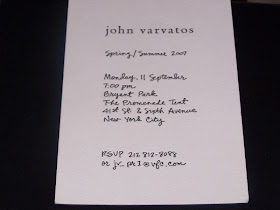 john varvatos
Spring/Summer 2007
Monday, 11 September
7:00 pm
Bryant Park
The Promenade Tent
41st St & Sixth Avenue
New York City
RSVP 212 812-8088
or jv_pr1@vfc.com